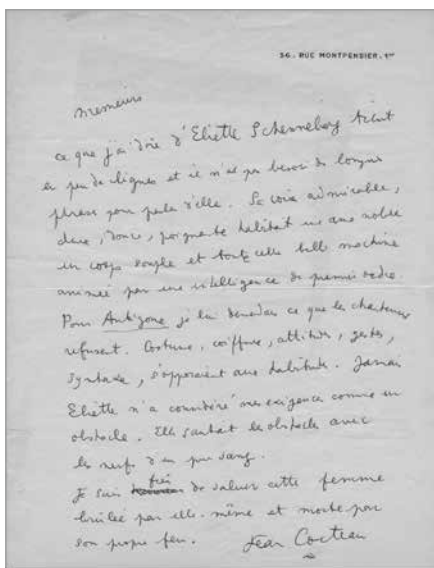 36, RUE MONTPENSIER, 1er
Messieurs
ce que j'ai à dire d'Eliette Schenneberg tient
en peu de lignes et il n'est pas besoin de longues
phrases pour parler d'elle. Sa voix admirable,
douce, poignante habitait une âme noble
un corps souple et toute cette belle machine
animée par une intelligence de premier ordre.
Pour Antigone je lui demandais ce que les chanteuses
refusent. Costume, coiffure, attitudes, gestes,
syntaxe, s'opposaient aux habitudes. Jamais
Eliette n'a considéré mes exigences comme un
obstacle. Elle sautait les obstacles avec
les nerfs d'un pur sang.
Je suis fier de saluer cette femme
brûlée par elle-même et morte par
son propre feu. Jean Cocteau